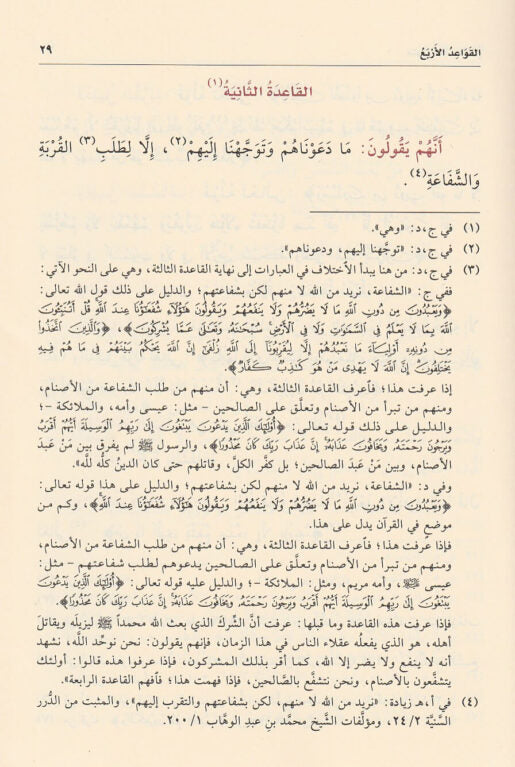 القَوَاعِدُ الأَرْبَعُ ٢٩
القَاعِدَةُ الثَّانِيَةُ (١)
أَنَّهُمْ يَقُولُونَ: مَا دَعَوْنَاهُمْ وَتَوَجَّهْنَا إِلَيْهِمْ (٢)، إِلَّا لِطَلَبِ (٣) القُرْبَةِ
وَالشَّفَاعَةِ (٤).
(١) في ج،د: «وهي».
(٢) في ج،د: «توجَّهنا إليهم، ودعوناهم».
(٣) في ج،د: من هنا يبدأ الاختلاف في العبارات إلى نهاية القاعدة الثالثة، وهي على النحو الآتي:
ففي ج: «الشفاعة، نريد من الله لا منهم لكن بشفاعتهم؛ والدليل على ذلك قول الله تعالى:
﴿وَيَعْبُدُونَ مِن دُونِ اللَّهِ مَا لَا يَضُرُّهُمْ وَلَا يَنفَعُهُمْ وَيَقُولُونَ هَٰؤُلَاءِ شُفَعَاؤُنَا عِندَ اللَّهِ قُلْ أَتُنَبِّئُونَ
اللَّهَ بِمَا لَا يَعْلَمُ فِي السَّمَاوَاتِ وَلَا فِي الْأَرْضِ سُبْحَانَهُ وَتَعَالَىٰ عَمَّا يُشْرِكُونَ﴾، ﴿وَالَّذِينَ اتَّخَذُوا
مِن دُونِهِ أَوْلِيَاءَ مَا نَعْبُدُهُمْ إِلَّا لِيُقَرِّبُونَا إِلَى اللَّهِ زُلْفَىٰ إِنَّ اللَّهَ يَحْكُمُ بَيْنَهُمْ فِي مَا هُمْ فِيهِ
يَخْتَلِفُونَ إِنَّ اللَّهَ لَا يَهْدِي مَنْ هُوَ كَاذِبٌ كَفَّارٌ﴾.
إذا عرفت هذا؛ فأعرف القاعدة الثالثة، وهي: أن منهم من طلب الشفاعة من الأصنام،
ومنهم من تبرأ من الأصنام وتعلَّق على الصالحين - مثل: عيسى وأمه، والملائكة -؛
والدليل على ذلك قوله تعالى: ﴿أُولَٰئِكَ الَّذِينَ يَدْعُونَ يَبْتَغُونَ إِلَىٰ رَبِّهِمُ الْوَسِيلَةَ أَيُّهُمْ أَقْرَبُ
وَيَرْجُونَ رَحْمَتَهُ وَيَخَافُونَ عَذَابَهُ إِنَّ عَذَابَ رَبِّكَ كَانَ مَحْذُورًا﴾، والرسول ﷺ لم يفرق بين مَنْ عَبدَ
الأصنام، وبين مَنْ عَبدَ الصالحين؛ بل كفَّر الكلَّ، وقاتلهم حتى كان الدينُ كلُّه لله».
وفي د: «الشفاعة، نريد من الله لا منهم لكن بشفاعتهم؛ والدليل على هذا قوله تعالى:
﴿وَيَعْبُدُونَ مِن دُونِ اللَّهِ مَا لَا يَضُرُّهُمْ وَلَا يَنفَعُهُمْ وَيَقُولُونَ هَٰؤُلَاءِ شُفَعَاؤُنَا عِندَ اللَّهِ﴾، وكم من
موضع في القرآن يدل على هذا.
فإذا عرفت هذا؛ فأعرف القاعدة الثالثة، وهي: أن منهم من طلب الشفاعة من الأصنام،
ومنهم من تبرأ من الأصنام وتعلَّق على الصالحين يدعوهم لطلب شفاعتهم - مثل:
عيسى ﷺ، وأمه مريم، ومثل: الملائكة -؛ والدليل عليه قوله تعالى: ﴿أُولَٰئِكَ الَّذِينَ يَدْعُونَ
يَبْتَغُونَ إِلَىٰ رَبِّهِمُ الْوَسِيلَةَ أَيُّهُمْ أَقْرَبُ وَيَرْجُونَ رَحْمَتَهُ وَيَخَافُونَ عَذَابَهُ إِنَّ عَذَابَ رَبِّكَ كَانَ مَحْذُورًا﴾.
فإذا عرفت هذه القاعدة وما قبلها: عرفت أنَّ الشِّركَ الذي بعث الله محمداً ﷺ ليزيلَه ويقاتلَ
أهله، هو الذي يفعلُه عقلاء الناس في هذا الزمان، فإنهم يقولون: نحن نوحِّد اللَّه، نشهد
أنه لا ينفع ولا يضر إلا الله، كما أقر بذلك المشركون، فإذا عرفوا هذه قالوا: أولئك
يتشفَّعون بالأصنام، ونحن نتشفَّع بالصَّالحين، فإذا فهمت هذا؛ فأفهم القاعدة الرابعة».
(٤) في أ،هـ زيادة: «نريد من الله لا منهم، لكن بشفاعتهم والتقرب إليهم»، والمثبت من الدُّرر
السَّنيَّة ٢٤/٢، ومؤلَّفات الشَّيخ محمَّد بن عبد الوهَّاب ٢٠٠/١.